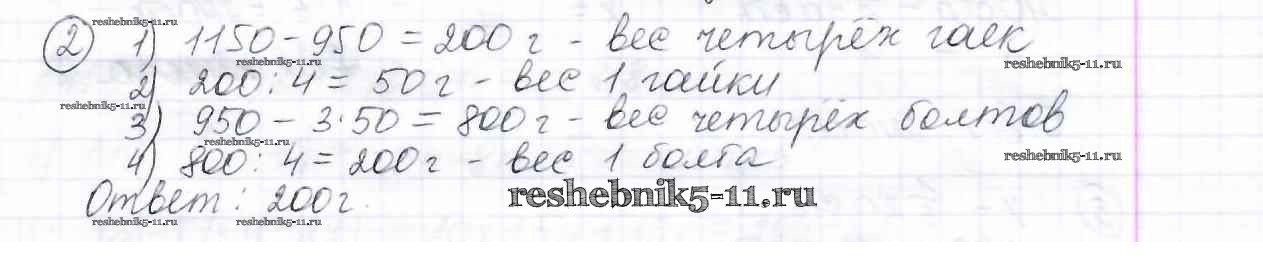 reshebnik5-11.ru
2) 1) 1150 - 950 = 200 г - вес четырёх гаек
reshebnik5-11.ru reshebnik5-11.ru
2) 200 : 4 = 50 г - вес 1 гайки
reshebnik5-11.ru
3) 950 - 3·50 = 800 г - вес четырёх болтов
reshebnik5-11.ru reshebnik5-11.ru
4) 800 : 4 = 200 г - вес 1 болта
Ответ: 200 г.
reshebnik5-11.ru
reshebnik5-11.ru reshebnik5-11.ru